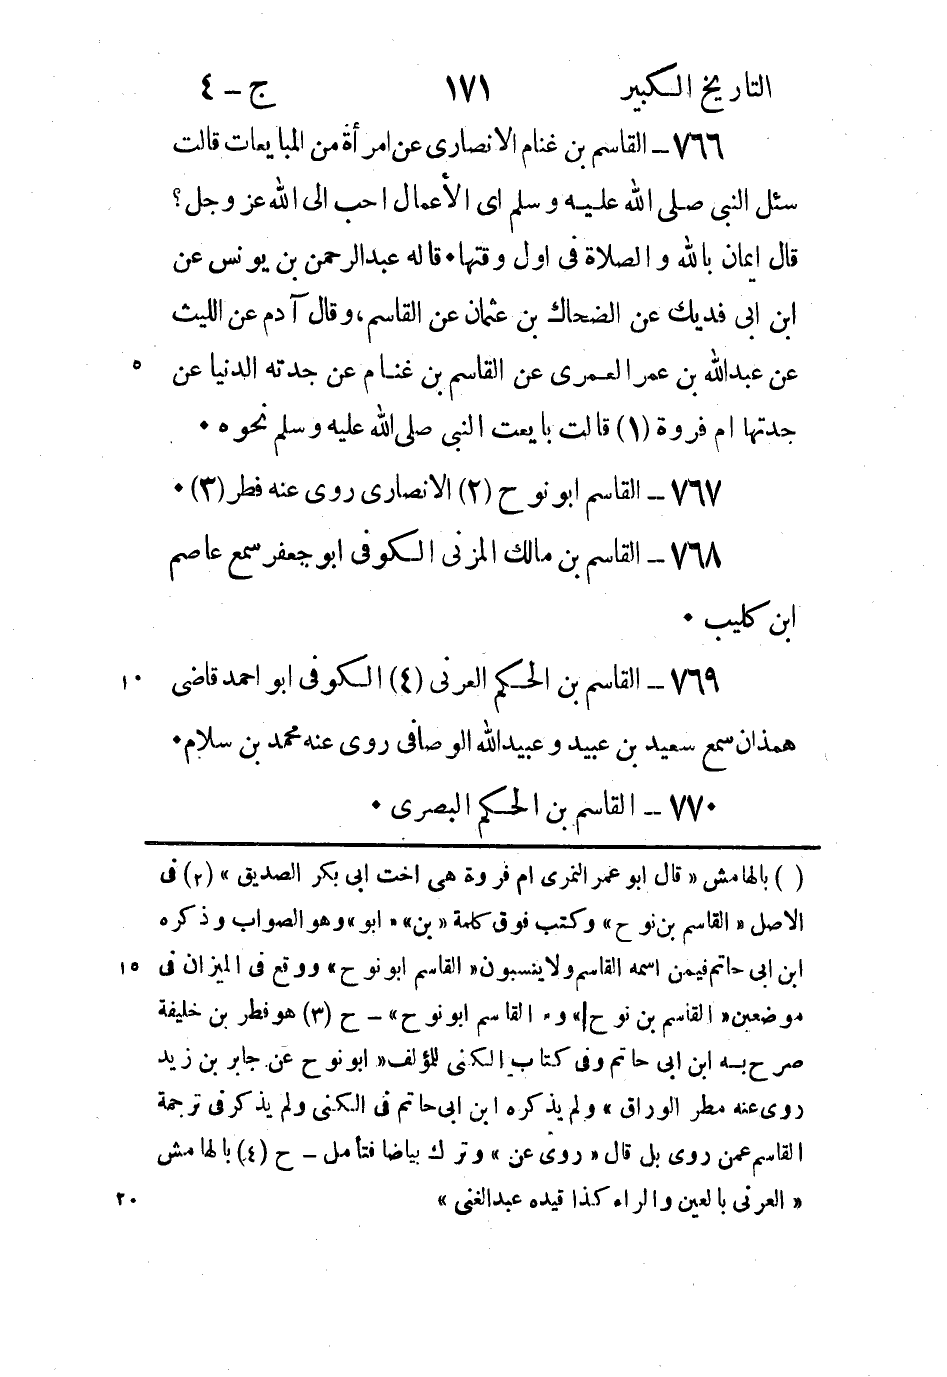 التاريخ الكبير ١٧١ ج - ٤
٧٦٦ - القاسم بن غنام الانصارى عن امرأة من المبايعات قالت
سئل النبى صلى الله عليه وسلم اى الأعمال احب الى الله عز وجل؟
قال ايمان بالله والصلاة فى اول وقتها • قاله عبدالرحمن بن يونس عن
ابن ابى فديك عن الضحاك بن عثمان عن القاسم، وقال آدم عن الليث
عن عبدالله بن عمر العمرى عن القاسم بن غنام عن جدته الدنيا عن ٥
جدتها ام فروة (١) قالت بايعت النبى صلى الله عليه وسلم نحوه •
٧٦٧ - القاسم ابو نوح (٢) الانصارى روى عنه فطر (٣) •
٧٦٨ - القاسم بن مالك المزنى الكوفى ابو جعفر سمع عاصم
ابن كليب •
٧٦٩ - القاسم بن الحكم العرنى (٤) الكوفى ابو احمد قاضى ١٠
همذان سمع سعيد بن عبيد وعبيدالله الوصافى روى عنه محمد بن سلام •
٧٧٠ - القاسم بن الحكم البصرى •
( ) بالهامش « قال ابو عمر النمرى ام فروة هى اخت ابى بكر الصديق » (٢) فى
الاصل « القاسم بن نوح » وكتب فوق كلمة « بن » « ابو » وهو الصواب وذكره
ابن ابى حاتم فيمن اسمه القاسم ولا ينسبون « القاسم ابو نوح » ووقع فى الميزان فى ١٥
موضعين « القاسم بن نوح » و « القاسم ابو نوح » - ح (٣) هو فطر بن خليفة
صرح به ابن ابى حاتم وفى كتاب الكنى للؤلف « ابو نوح عن جابر بن زيد
روى عنه مطر الوراق » ولم يذكره ابن ابى حاتم فى الكنى ولم يذكر فى ترجمة
القاسم عمن روى بل قال « روى عن » وترك بياضا فتأمل - ح (٤) بالهامش
« العرنى بالعين والراء كذا قيده عبدالغنى » ٢٠